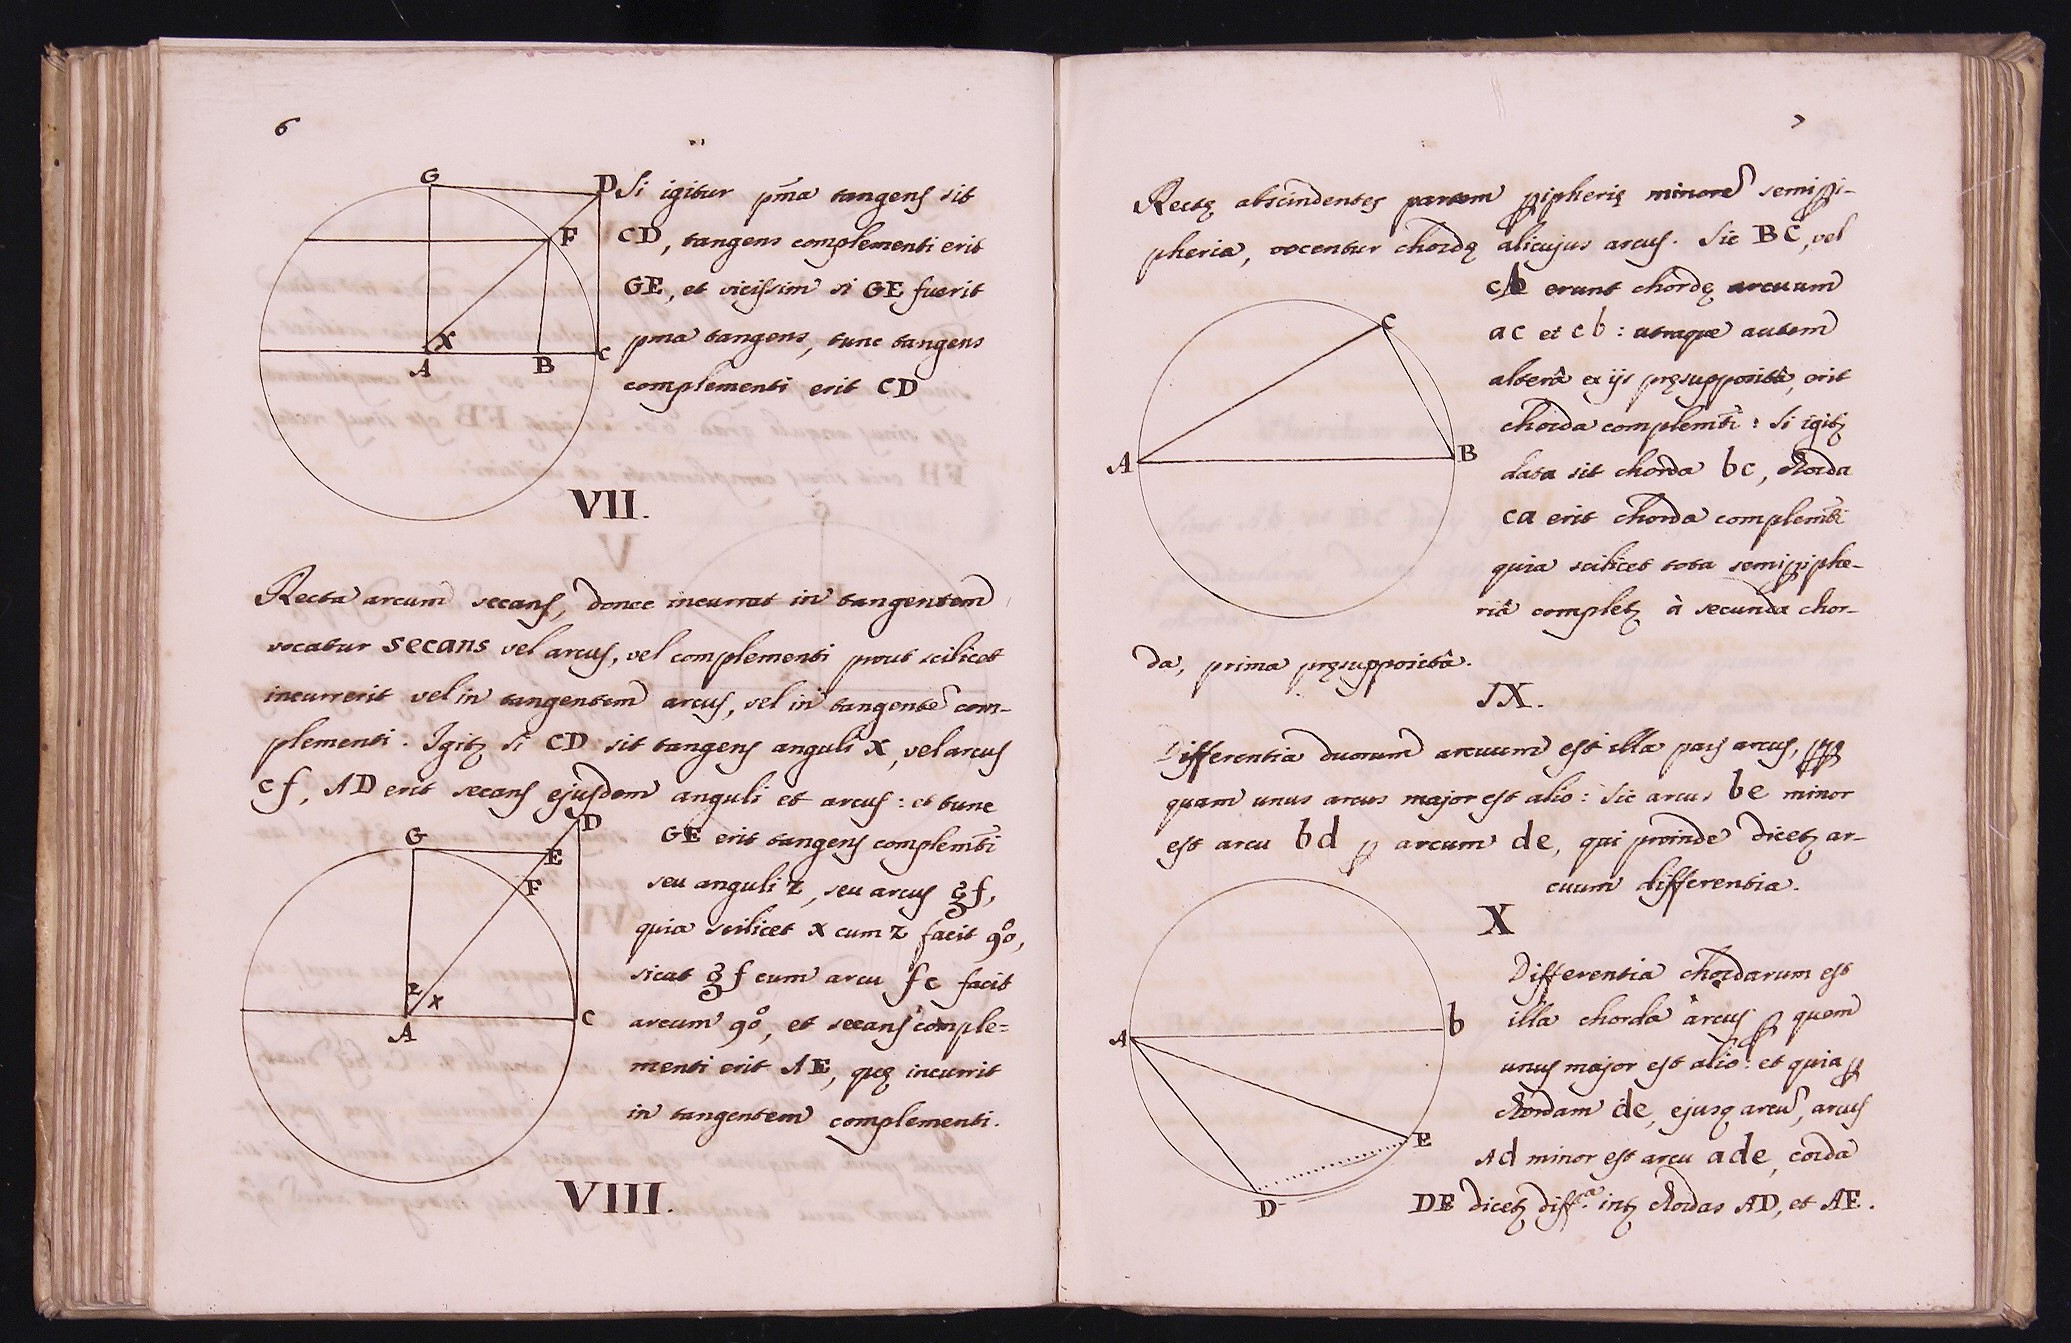 6
G
D Si igitur pma tangens sit
F CD, tangens complementi erit
GE, et vicissim si GE fuerit
X pma tangens, tunc tangens
A B C complementi erit CD
VII.
Recta arcum secans, donec incurrat in tangentem
vocatur secans vel arcus, vel complementi prout scilicet
incurrerit vel in tangentem arcus, vel in tangentē com-
plementi. Igitʒ si CD sit tangens anguli X, vel arcus
cf, AD erit secans ejusdem anguli et arcus: et tunc
D
G E GE erit tangens complemti
F seu anguli z, seu arcus gf,
quia scilicet x cum z facit 90,
sicut gf cum arcu fc facit
z x
A C arcum 90, et secans comple=
menti erit AE, quę incurrit
in tangentem complementi.
VIII.
7
Rectę abscindentes partem ꝑipherię minorē semiꝑi-
pheria, vocentur chordę alicujus arcus. Sic BC, vel
cb erunt chordę arcuum
C
ac et cb: utraque autem
alterâ ex ijs pręsuppositâ, erit
chorda complemti: Si igitʒ
A B data sit chorda bc, chorda
ca erit chorda complemti
quia scilicet tota semiꝑiphe-
riâ completʒ à secunda chor-
da, prima pręsuppositâ.
IX.
Differentia duorum arcuum est illa pars arcus, ꝑ
quam unus arcus major est alio: Sic arcus be minor
est arcu bd ꝑ arcum de, qui proinde dicetʒ ar-
cuum differentia.
X
Differentia chordarum est
A b illa chorda arcus ꝑ quem
unus major est alio: et quia ꝑ
chordam de, ejusq arcū, arcus
E
Ad minor est arcu ade, corda
D DE dicetʒ diffria intʒ chordas AD, et AE.